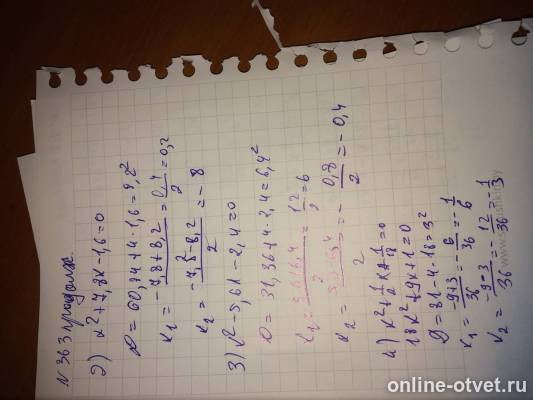 N 363 продолж.
2) x² + 7,8x - 1,6 = 0
D = 60,84 + 4 · 1,6 = 8,2²
x₁ = -7,8 + 8,2 / 2 = 0,4 / 2 = 0,2
x₂ = -7,8 - 8,2 / 2 = -8
3) x² - 5,6x - 2,4 = 0
D = 31,36 + 4 · 2,4 = 6,4²
x₁ = 5,6 + 6,4 / 2 = 12 / 2 = 6
x₂ = 5,6 - 6,4 / 2 = - 0,8 / 2 = -0,4
4) x² + 1/2 x + 1/18 = 0
18x² + 9x + 1 = 0
D = 81 - 4 · 18 = 3²
x₁ = -9 + 3 / 36 = - 6 / 36 = - 1/6
x₂ = -9 - 3 / 36 = - 12 / 36 = - 1/3
online-otvet.ru